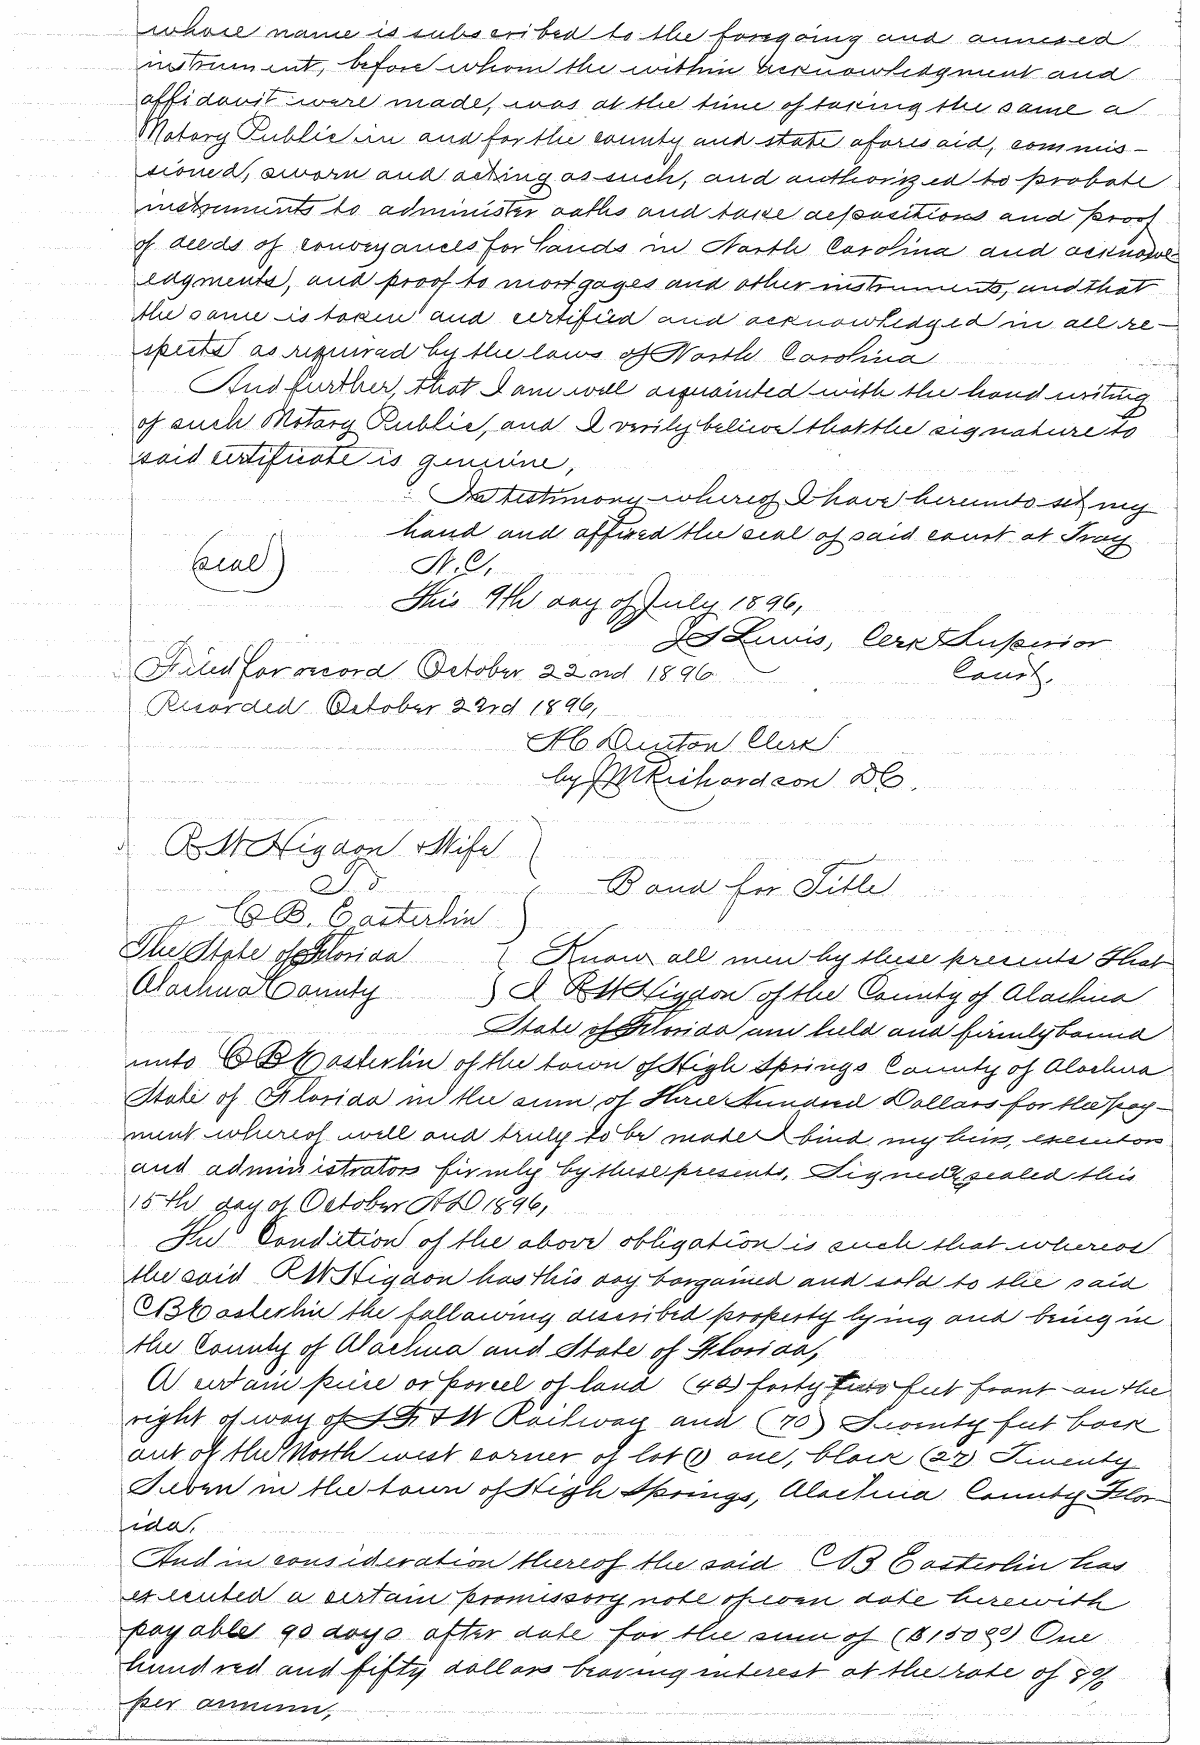 whose name is subscribed to the foregoing and annexed
instrument, before whom the within acknowledgment and
affidavit were made, was at the time of taking the same a
Notary Public in and for the county and state aforesaid, commis-
sioned, sworn and acting as such, and authorized to probate
instruments to administer oaths and take depositions and proof
of deeds of conveyances for lands in North Carolina and acknowl
edgments, and proof to mortgages and other instruments, and that
the same is taken and certified and acknowledged in all re-
spects as required by the laws of North Carolina
And further, that I am well acquainted with the hand writing
of such Notary Public, and I verily believe that the signature to
said certificate is genuine,
In testimony whereof I have hereunto set my
hand and affixed the seal of said court at Troy
(seal) N.C.
This 9th day of July 1896,
Lewis, Clerk Superior
Filed for record October 22nd 1896 Court.
Recorded October 23rd 1896,
H C Denton Clerk
by J M Richardson D C.
R W Higdon & Wife
To Bond for Title
C B. Easterlin
The State of Florida } Know all men by these presents that
Alachua County } I R W Higdon of the County of Alachua
State of Florida am held and firmly bound
unto C B Easterlin of the town of High Springs County of Alachua
State of Florida in the sum of Three Hundred Dollars for the pay-
ment whereof well and truly to be made I bind my heirs, executors
and administrators firmly by these presents, Signed & sealed this
15th day of October A D 1896,
The Condition of the above obligation is such that whereas
the said R W Higdon has this day bargained and sold to the said
C B Easterlin the following described property lying and being in
the County of Alachua and State of Florida,
A certain piece or parcel of land (42) forty two feet front on the
right of way of S F & W Railway and (70) Seventy feet back
out of the North west corner of lot (1) one, block (27) Twenty
Seven in the town of High Springs, Alachua County Flor
ida.
And in consideration thereof the said C B Easterlin has
executed a certain promissory note of even date herewith
payable 90 days after date for the sum of ($150 00) One
hundred and fifty dollars bearing interest at the rate of 8%
per annum,